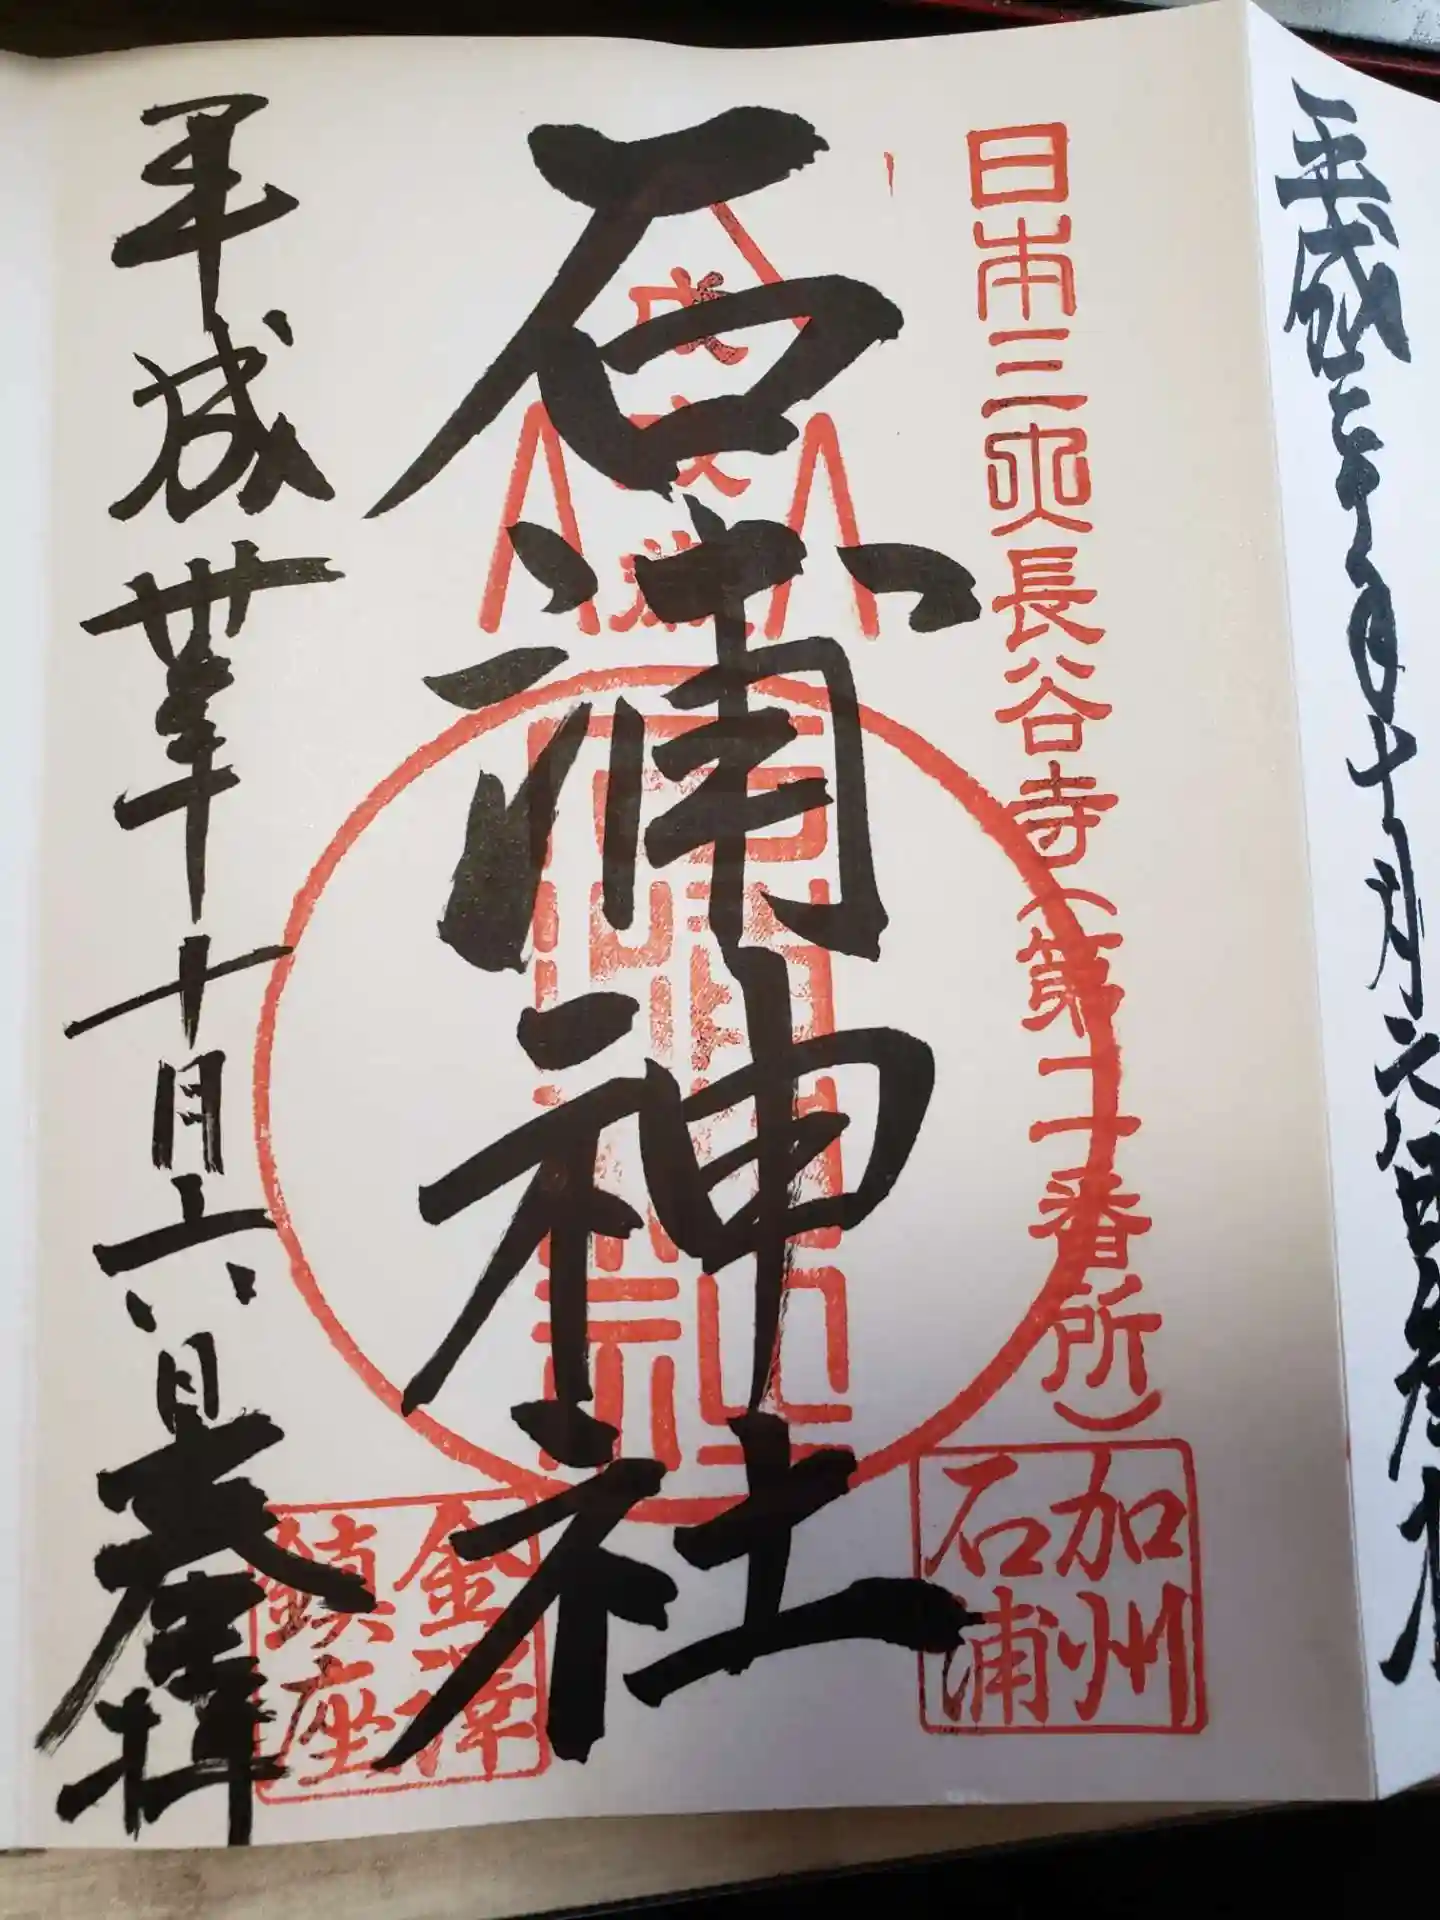 平成三十年十月六日奉拝
日本三所長谷寺(第二番所)
加州
石浦
石浦神社
金澤
鎮座
平成丗年十月六日奉拝